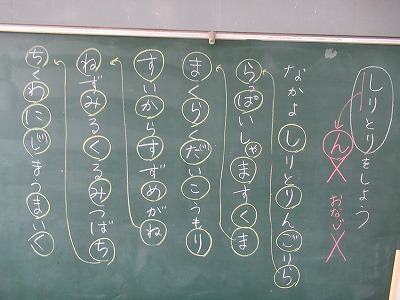 しりとりをしよう
ん× おなじ×
なかよしりとりんごりら
らっぱいしゃますくま
まくらくだいこうもり
すいからすずめがね
ねずみるくるみつばち
ちくわにじまうまいく